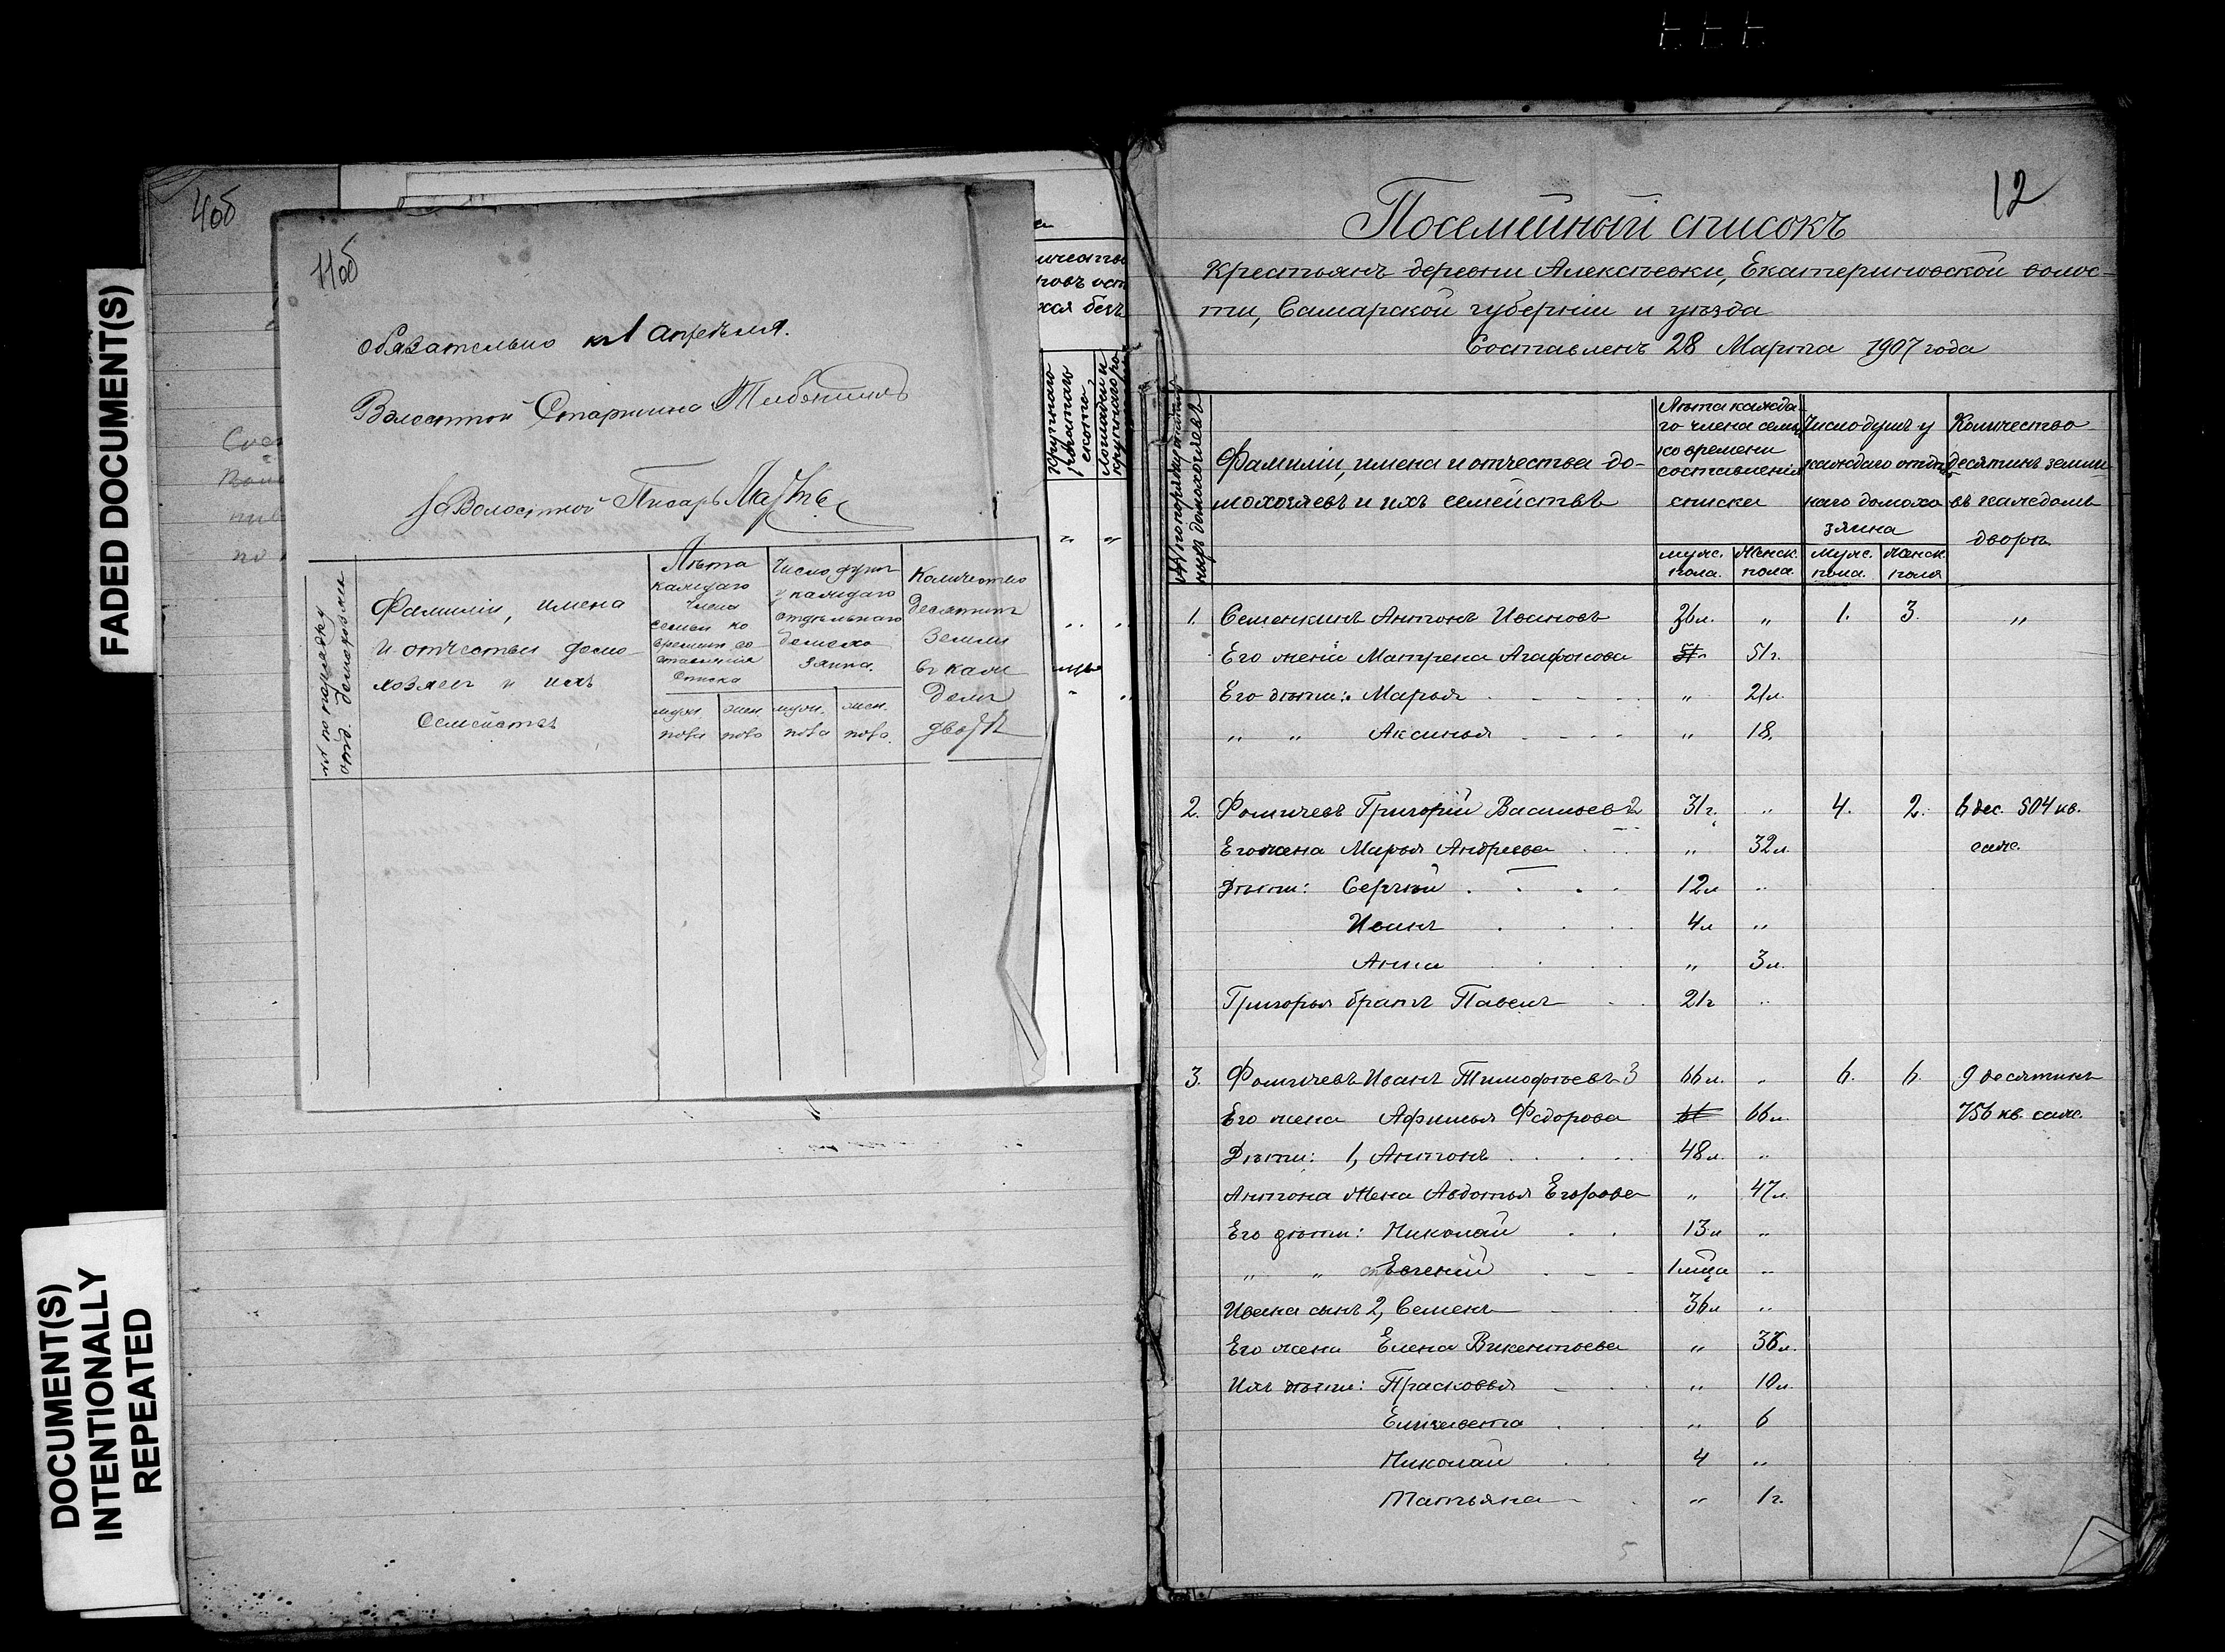 FADED DOCUMENT(S)
DOCUMENT(S)
INTENTIONALLY
REPEATED
4об
11об
обязательно к 1 апрѣля.
Волостной Старшина
Волостной Писарь
№№ по порядку
отд. домохозяи
Фамиліи, имена
и отчества домо-
хозяевъ и ихъ
Семействъ
Лѣта
каждаго
члена
семьи ко
времени со-
ставленія
списка
муж. пола
жен. пола
Число душъ
у каждаго
отдѣльнаго
домохо
зяина.
муж. пола
жен. пола.
Количество
десятинъ
земли
въ каж
домъ
дворѣ
крупнаго
рогатаго
скота
12
Посемейный списокъ
Крестьянъ деревни Алексѣевки, Екатериновской волос-
ти, Самарской губерніи и уѣзда
Составленъ 28 Марта 1907 года
Фамиліи, имена и отчества до-
мохозяевъ и ихъ семействъ
Лѣта кажда-
го члена семьи
ко времени
составленія
списка
муж. пола.
женск. пола
Число душъ у
каждаго отдѣль
наго домохо
зяина
муж. пола.
женск. пола
Количество
десятинъ земли
въ каждомъ
дворѣ.
1. Семенкинъ Антонъ Ивановъ 36 л. " 1. 3. "
Его жена Матрена Агафонова 51г.
Его дѣти: Марья " 21л.
" " Аксинья " 18.
2. Фомичевъ Григорій Васильев 2 31г. " 4. 2. 6 дес. 504 кв.
Его жена Марья Андреева " 32л. саж.
Дѣти: Сергѣй 12л "
Иванъ 4л "
Анна " 3л.
Григорья братъ Павелъ 21г "
3. Фомичевъ Иванъ Тимофѣевъ 3 66л. " 6. 6. 9 десятинъ
Его жена Афимья Федорова 66 66л. 756 кв. саж.
Дѣти: 1, Антонъ 48л. "
Антона жена Авдотья Егорова " 47л.
Его дѣти: Николай 13л "
" " Евгеній "
Ивана сынъ 2, Семенъ 36л "
Его жена Елена Викентьева "
Ихъ дѣти: Прасковья " 10л.
Елизавета " 6
Николай 4 "
Татьяна " 1г.